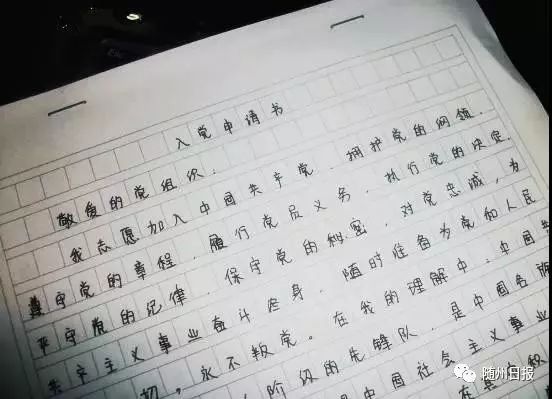 入党申请书
敬爱的党组织：
我志愿加入中国共产党，拥护党的纲领，
遵守党的章程，履行党员义务，执行党的决定，
严守党的纪律，保守党的秘密，对党忠诚，为
共产主义事业奋斗终身，随时准备为党和人民
切，永不叛党。在我的理解中，中国共
阶级的先锋队，是中国各族
中国社会主义事业
随州日报